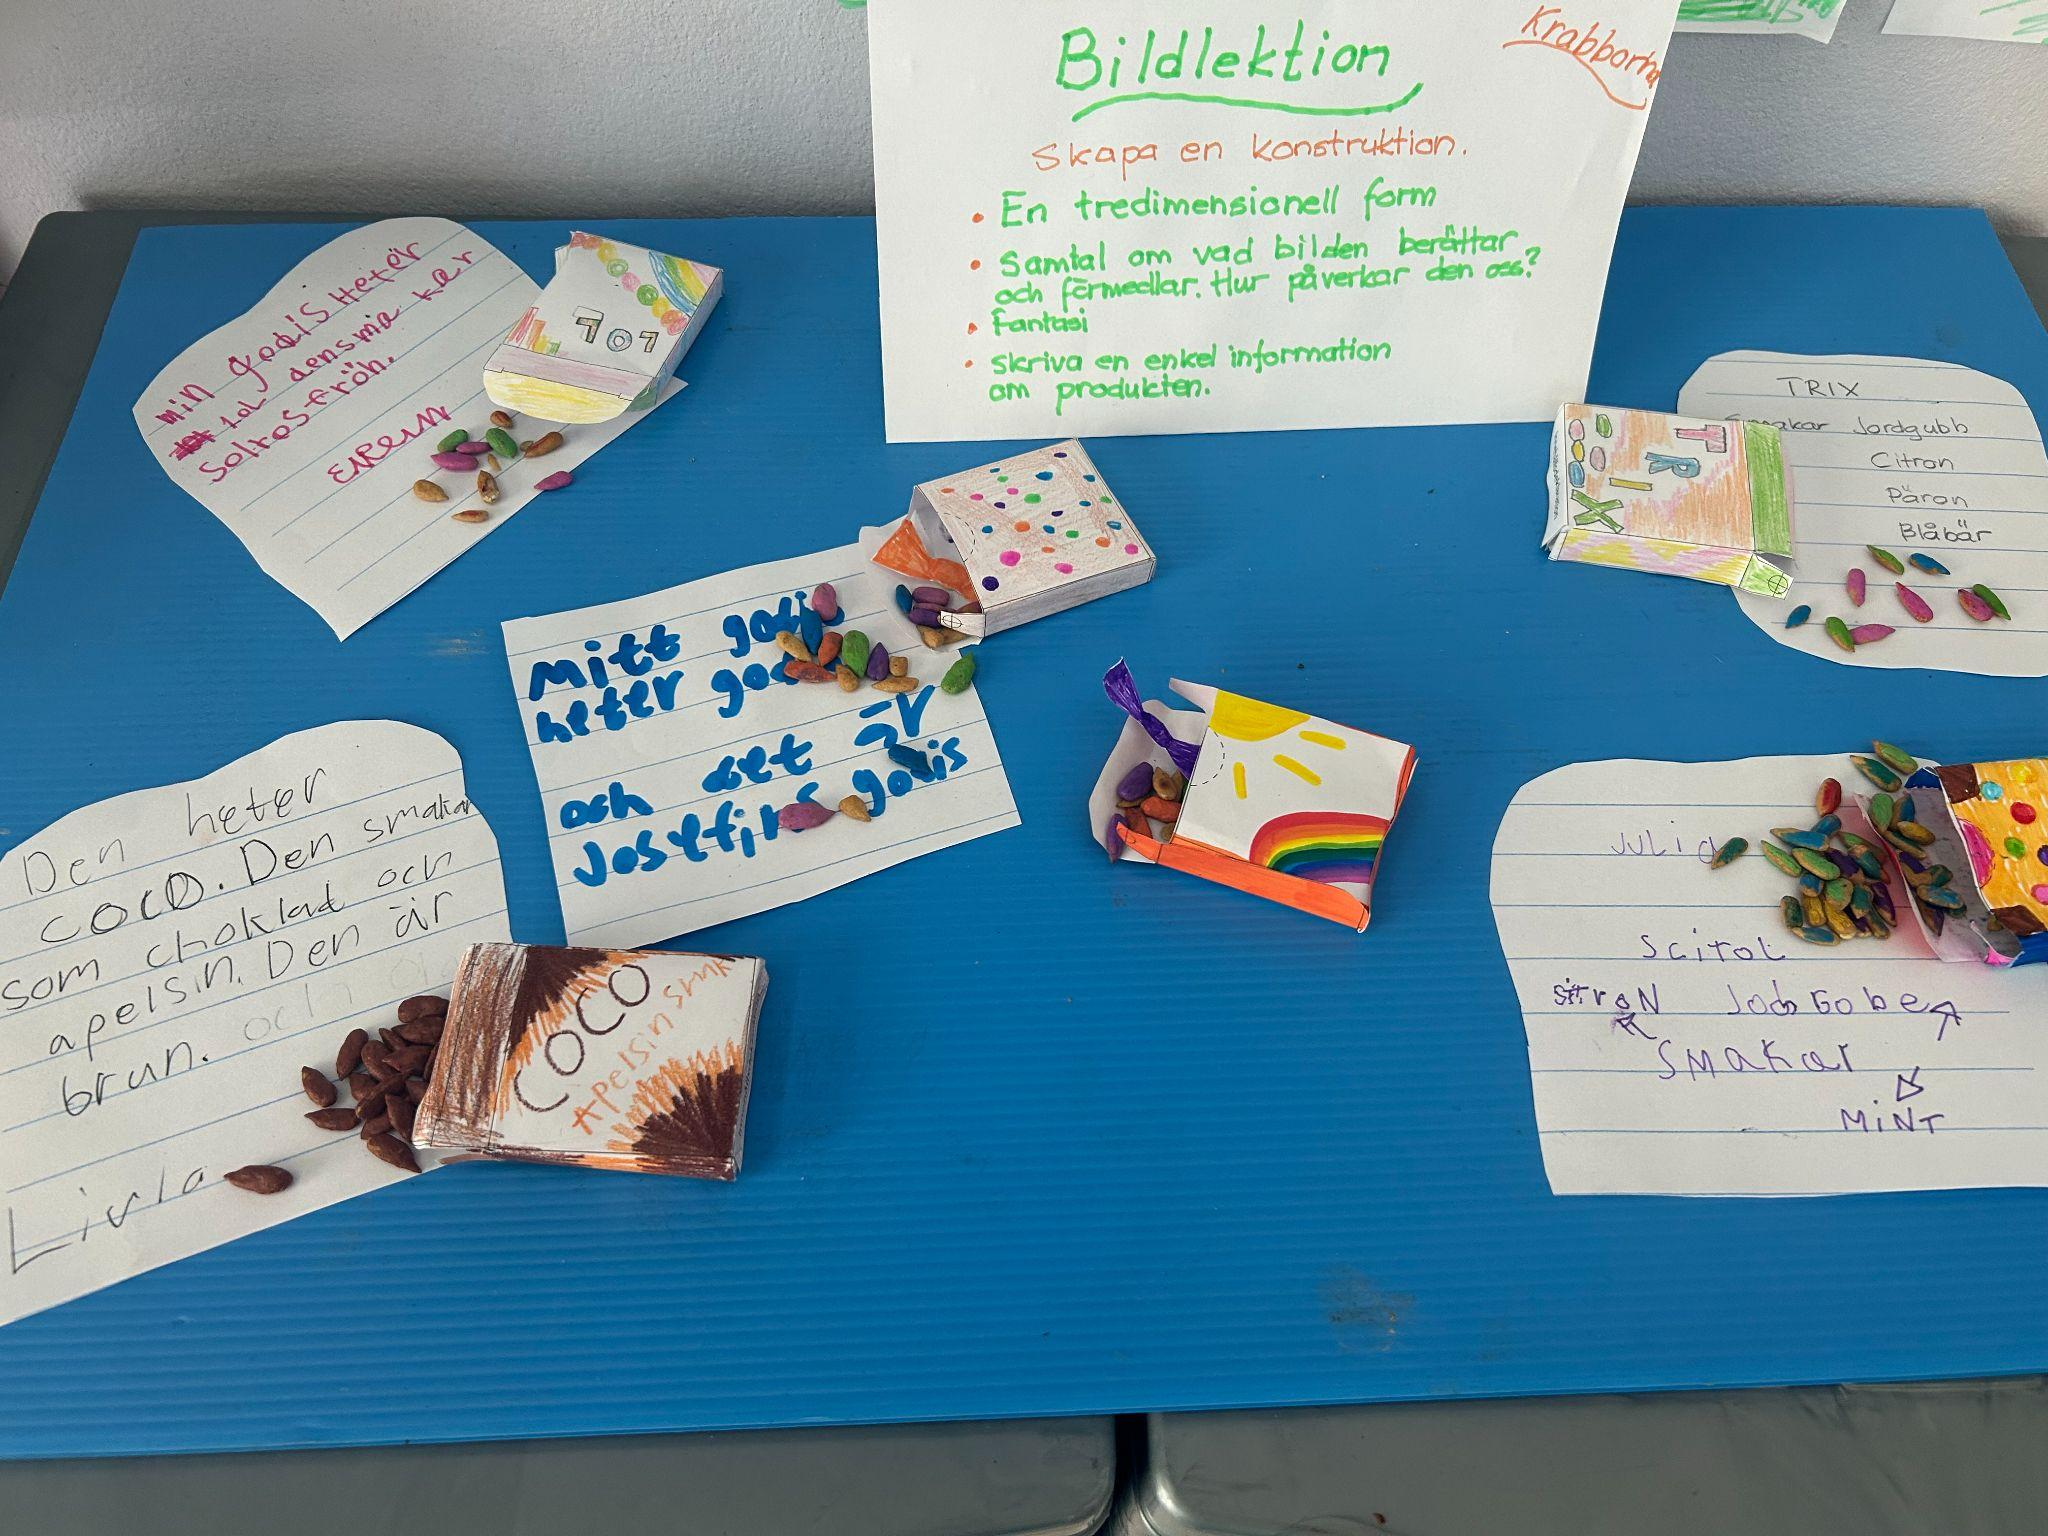 Bildlektion
Krabborna
Skapa en konstruktion.
• En tredimensionell form
• Samtal om vad bilden berättar
och förmedlar. Hur påverkar den oss?
• Fantasi
• skriva en enkel information
om produkten.
min godis Heter
lol densma kar
Soltosfröh.
lol
Mitt godis
heter
och det är
Josefins godis
TRIX
Smakar Jordgubb
Citron
Päron
Blåbär
TRIX
Den heter
COCO. Den smakar
som choklad och
apelsin. Den är
brun. och
Livia
COCO
Apelsin smak
Julia
Scitol
SitroN JodGobe
SMAkar
MiNT